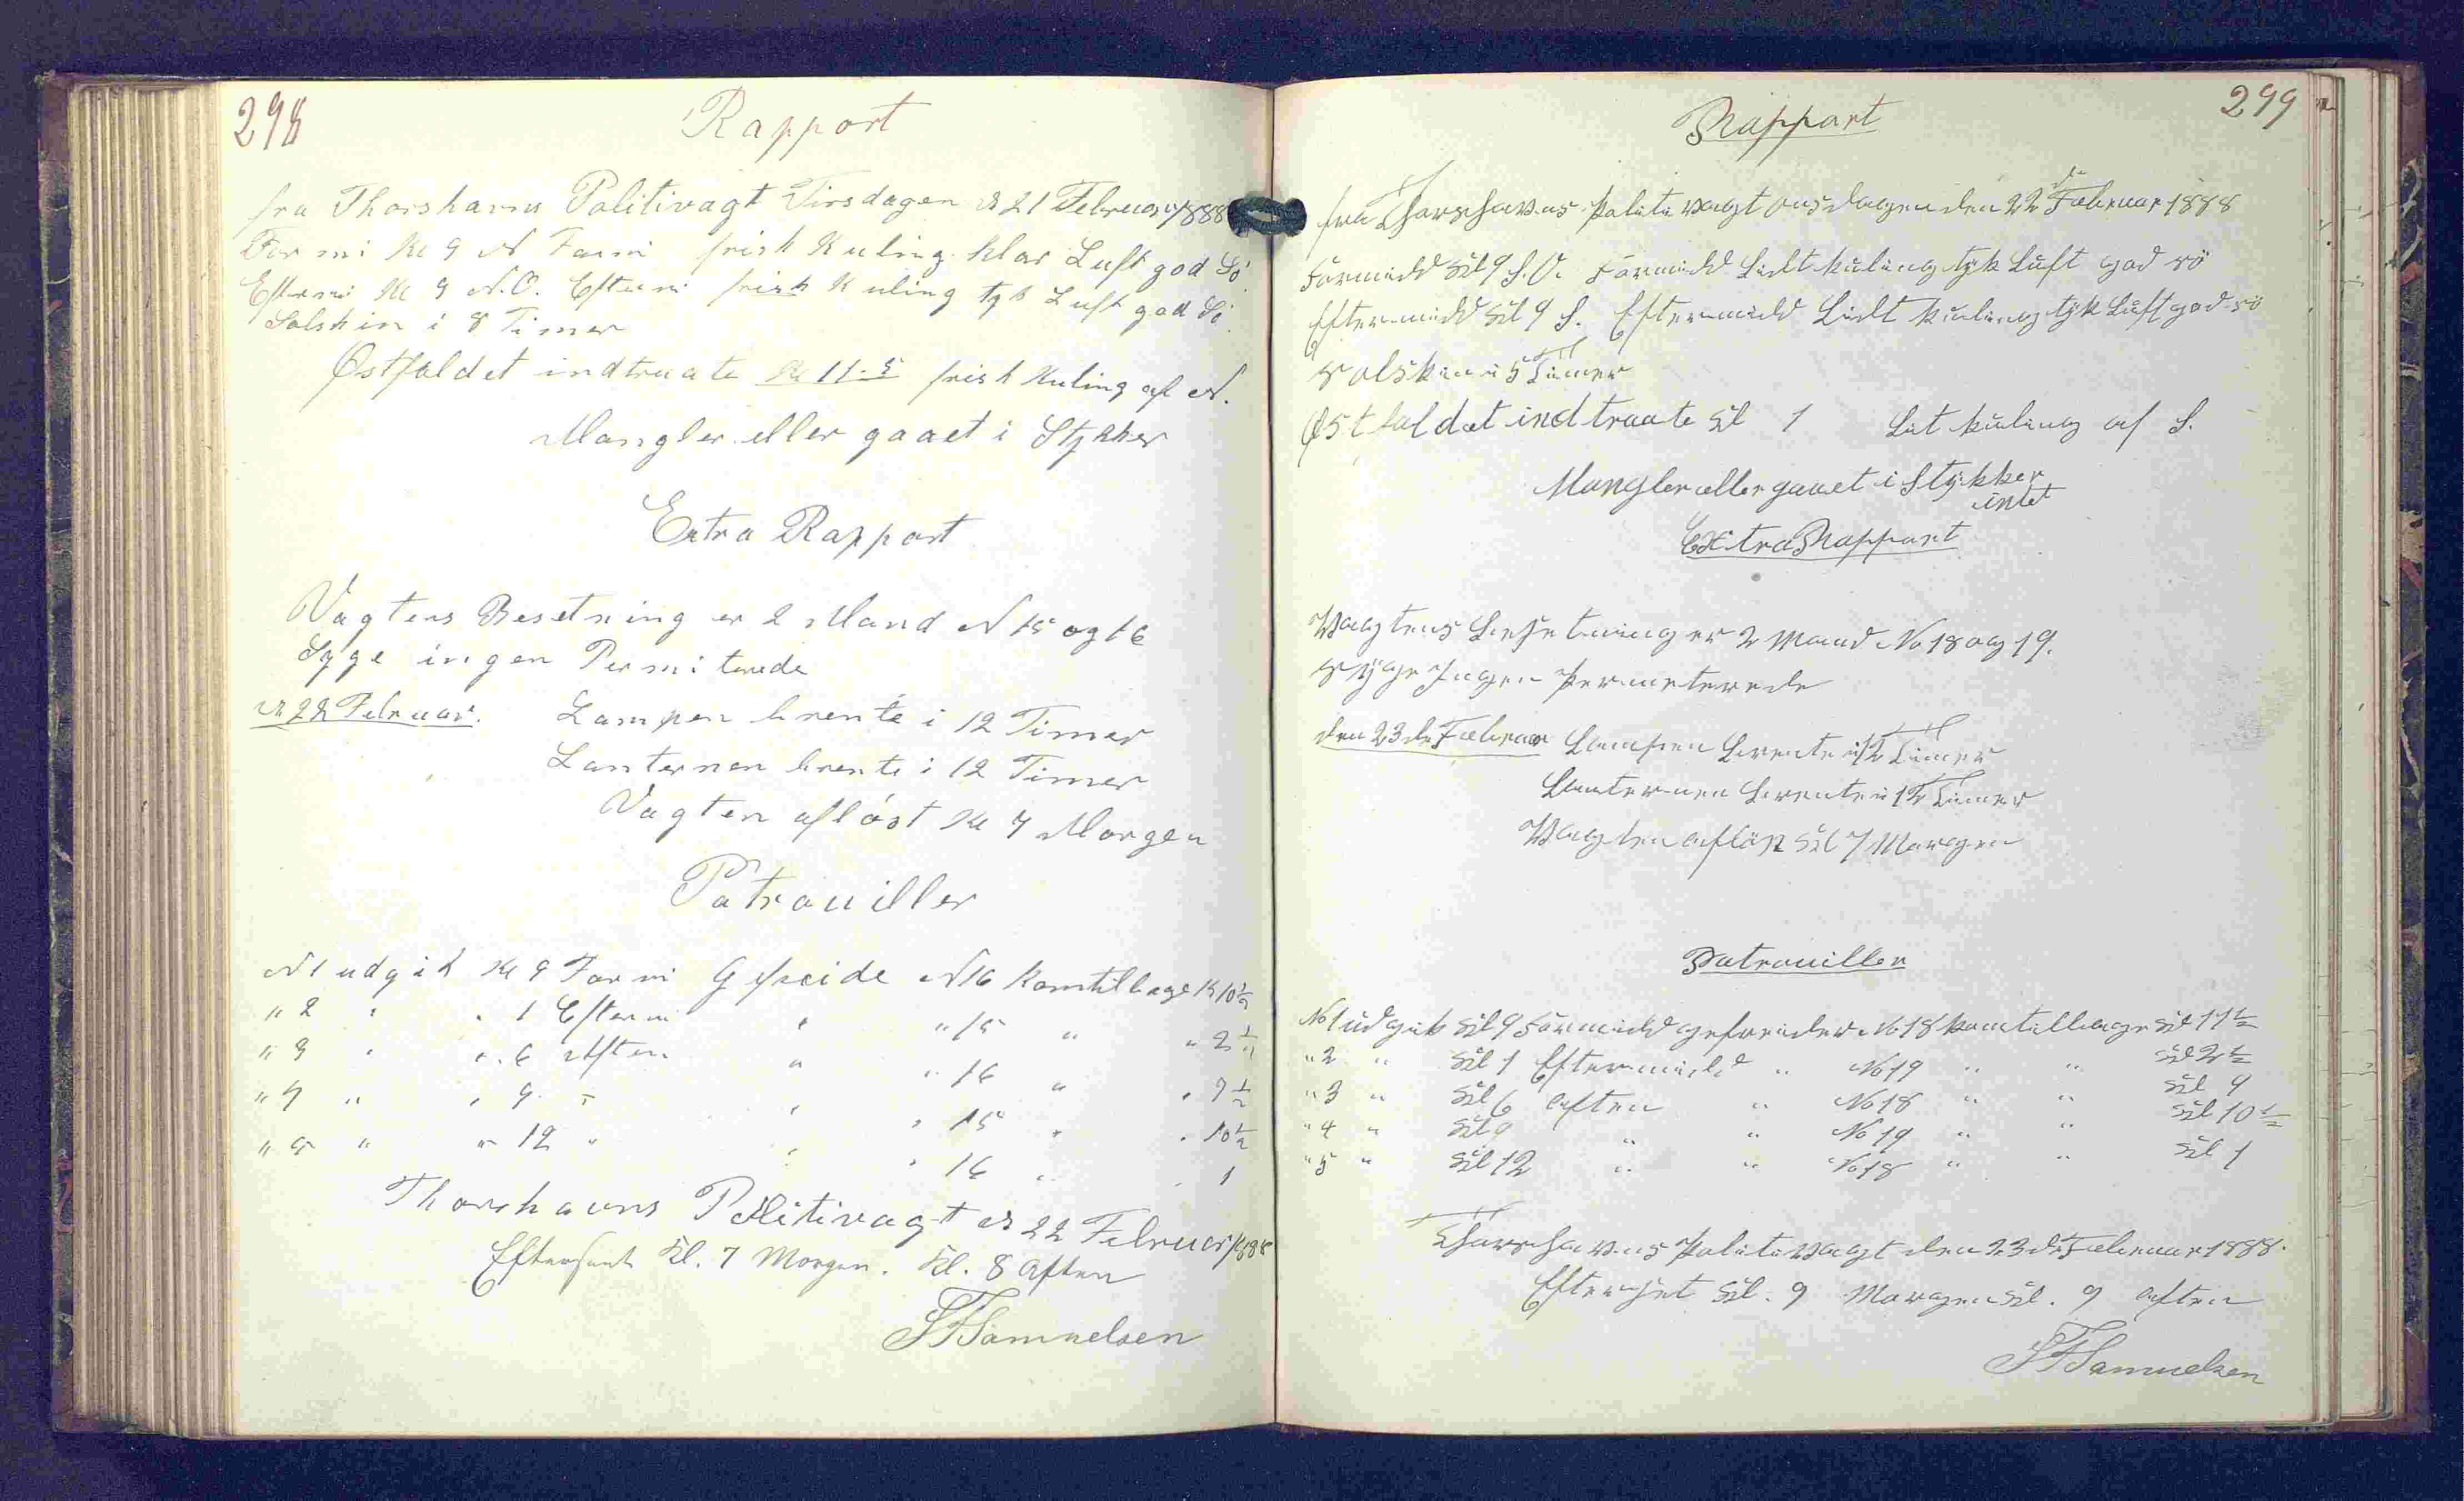 298
Rapport
fra Thorshavns Politivagt Tirsdagen d 21 Februar 1888
Formi Kl 9 N Formi frisk Kuling klar Luft god Sö
Eftermi Kl 9 N.O. Eftermi frisk Kuling tyk Luft god Sö
Solskin i 8 Timer
Østfaldet indtraate Kl 11.5 frisk Kuling af N.
Mangler eller gaaet i Stykker
Extra Rapport
Vagtens Besetning er 2 Mand N 15 og 16
Syge ingen Permiterede
d 22 Februar. Lampen brente i 12 Timer
Lanternen brente i 12 Timer
Vagten aflöst Kl 7 Morgen
Patrouiller
N 1 udgik Kl 9 Formi Gefreide N 16 kom tilbage Kl 10½
" 2 " " 1 Eftermi " " 15 " " 2½
" 3 " " 6 Aften " " 16 " " 7½
" 4 " " 9 " " " 15 " " 10½
" 5 " " 12 " " " 16 " " 1
Thorshavns Politivagt d 22 Februar 1888
Efterseet Kl. 7 Morgen. Kl. 8 Aften
Samuelsen
299
Rappart
fra Thorshavns Politivagt Onsdagen den 22de Februar 1888
Formidd Kl 9 S.O. Formidd Lidt kuling tyk Luft god sö
Eftermidd Kl 9 S. Eftermidd Lidt kuling tyk Luft god sö
solskin i 5 Timer
Østfaldet indtraate Kl 1 Lit kuling af S.
Mangler eller gaaet i Stykker
intet
Extra Rappart
Vagtens Besetning er 2 Mand No 18 og 19.
syge Ingen Permeterede
den 23de Februar Lampen brente i 12 Timer
Lanternen brente i 12 Timer
Vagten aflöst Kl 7 Morgen
Patrouiller
No 1 udgik Kl 9 Formidd gefreider No 18 kom tilbage Kl 11½
" 2 " Kl 1 Eftermidd " No 19 " " Kl 2½
" 3 " Kl 6 aften " No 18 " " Kl 9
" 4 " Kl 9 " " No 19 " " Kl 10½
" 5 " Kl 12 " " No 18 " " Kl 1
Thorshavns Politivagt den 23de Februar 1888.
Efterset Kl. 9 Morgen Kl. 9 aften
Samuelsen